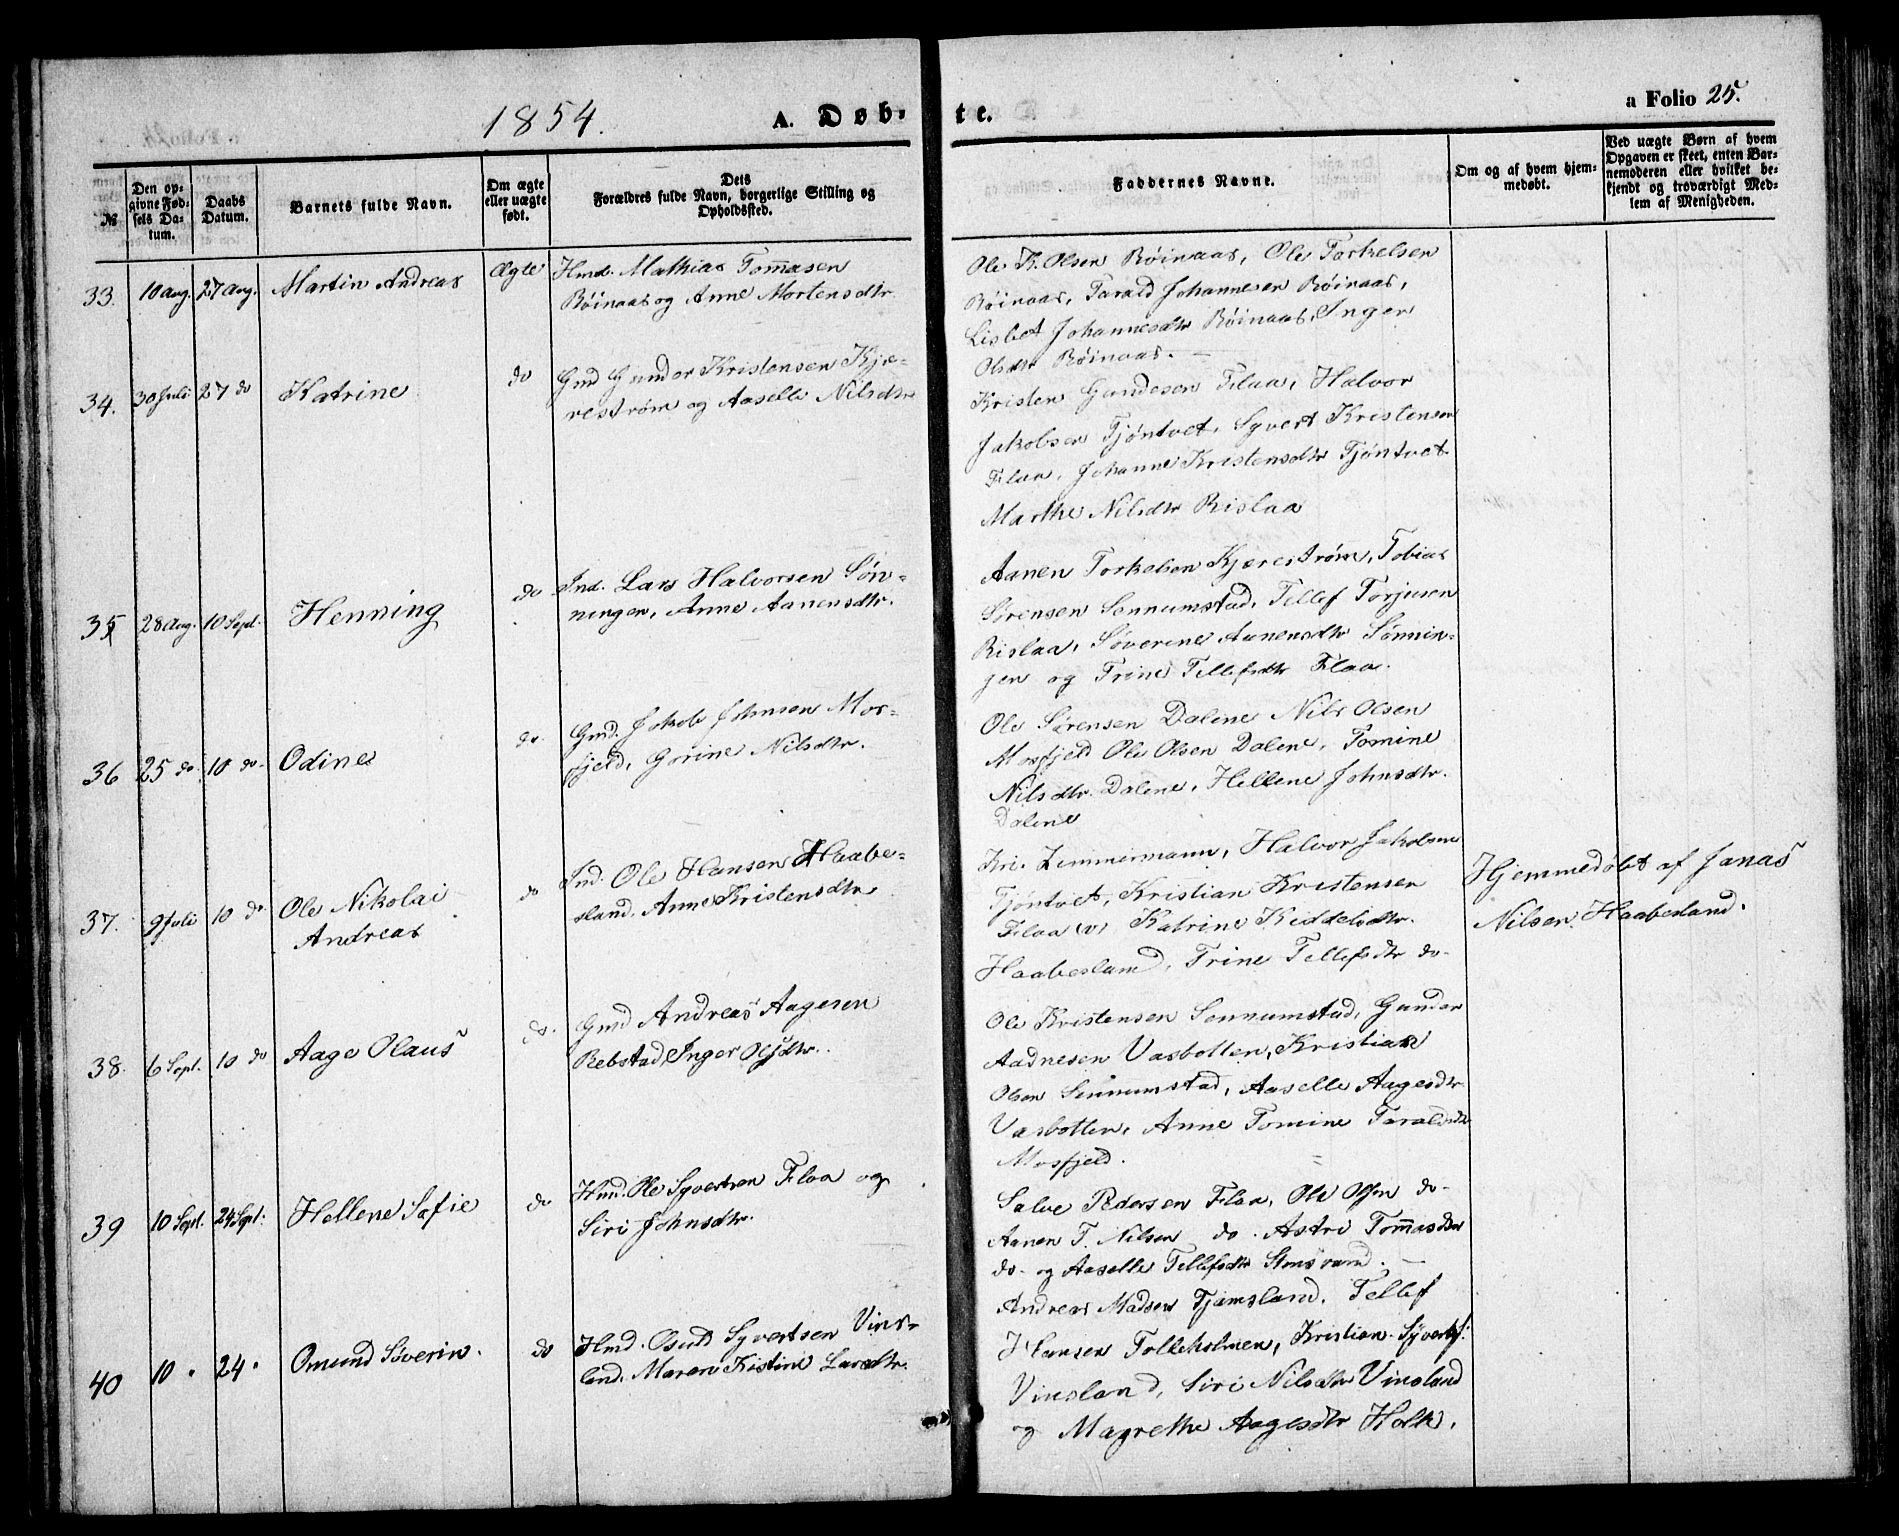 1854.
A. Døb-
te.
a Folio 25.
№
Den op-
givne Fød-
sels Da-
tum.
Daabs
Datum.
Barnets fulde Navn.
Om ægte
eller uægte
født.
Dets
Forældres fulde Navn, borgerlige Stilling og
Opholdssted.
Faddernes Navne.
Om og af hvem hjem-
medøbt.
Ved uægte Børn af hvem
Opgaven er skeet, enten Bar-
nemoderen eller hvilket be-
kjendt og troværdigt Med-
lem af Menigheden.
33. 10 Aug. 27 Aug. Martin Andreas Ægte
Hmd. Mathias Tom̄asen
Röinaas og Anne Mortensdtr
Ole K. Olsen Röinaas, Ole Torkelsen
Röinaas, Tarald Johannesen Röinaas,
Lisbet Johannesdtr Röinaas, Inger
Olsdtr Röinaas. —
34. 30 Juli 27 do Katrine do
Gmd Gunder Kristensen Kjæ-
reström og Aaselle Nilsdtr
Kristen Gundesen Flaa, Halvor
Jakobsen Tjöntvet, Syvert Kristensen
Flaa, Johanne Kristensdtr Tjöntvet
Marthe Nilsdtr Rislaa
35 28 Aug. 10 Sept. Henning do
Ind. Lars Halvorsen Sön-
ningen, Anne Aanensdtr.
Aanen Torkelsen Kjæreström, Tobias
Sörensen Sennumstad, Tellef Torjusen
Rislaa, Söverine Aanensdtr Sönnin-
gen og Trine Tellefsdtr Flaa.
36 25 do 10 do. Odine do.
Gmd. Jakob Johnsen Mos-
fjeld, Gorine Nilsdtr.
Ole Sörensen Dalene Nils Olsen
Mosfjeld Ole Olsen Dalene, Tomine
Nilsdtr. Dalene, Hellene Johnsdtr.
Dalene
37. 9 Juli 10 do Ole Nikolai
Andreas
do
Ind. Ole Hansen Haabe-
sland. Anne Kristensdtr
Kri. Zimmermann, Halvor Jakobsen
Tjöntvet, Kristian Kristensen
Flaa Katrine Kiddelsdtr.
Haabesland, Trine Tellefsdtr do.
Hjemmedøbt af Jonas
Nilsen Haabesland.
38. 6 Sept. 10 do Aage Olaus do.
Gmd Andreas Aagesen
Rebstad, Inger Olsdtr.
Ole Kristensen Sennumstad, Gunder
Aadnesen Vasbotten, Kristian
Olsen Sennumstad, Aaselle Aagesdtr
Vasbotten, Anne Tomine Taraldsdtr
Mosfjeld.
39 10 Sept. 24 Sept. Hellene Sofie do
Hmd. Ole Syvertsen Flaa og
Siri Johnsdtr.
Salve Pedersen Flaa, Ole Olsen do.
Aanen T. Nilsen do. Astri Tom̄asdtr
do. og Aaselle Tellefsdtr
40 10 " 24 " Omund Söverin. do
Hmd. Osuld Syvertsen Vins-
land. Maren Kistine Larsdtr.
Andreas Madsen Tjomsland. Tellef
Hansen Tolleholmen, Kristian Syverts:
Vinsland, Siri Nilsdtr Vinsland
og Magrethe Aagesdtr Holte.